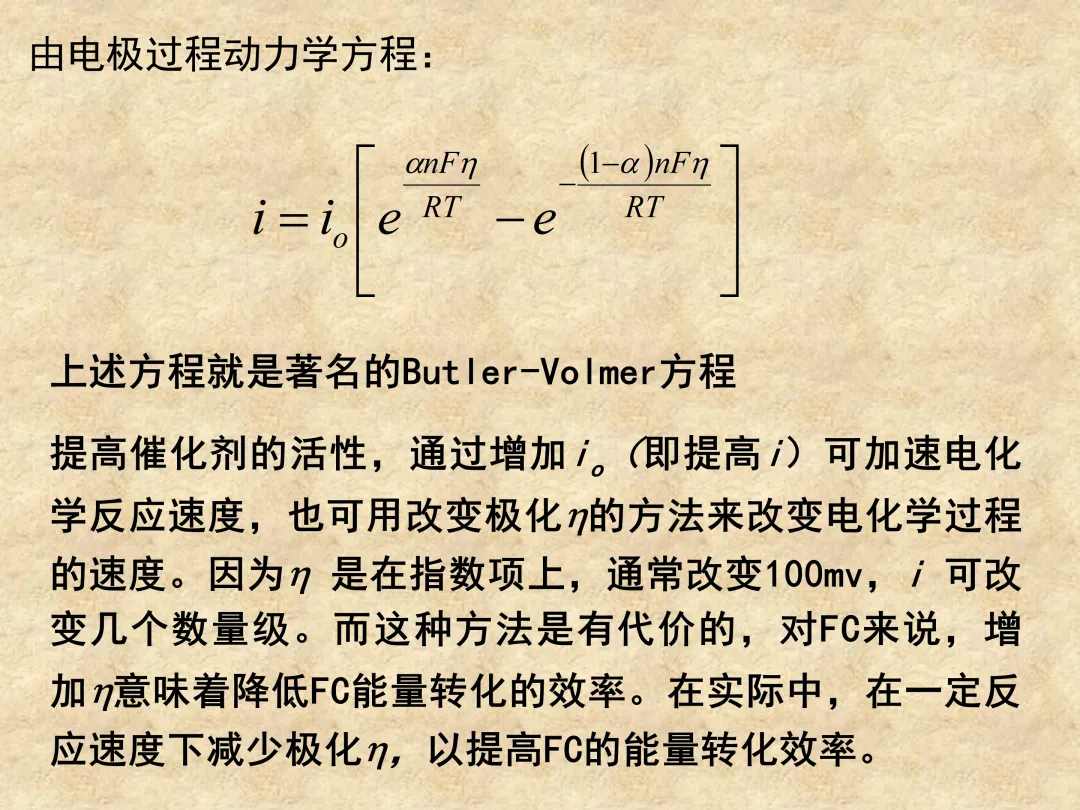 由电极过程动力学方程：
i = i_o [ e^{αnFη/RT} − e^{−(1−α)nFη/RT} ]
上述方程就是著名的Butler-Volmer方程
提高催化剂的活性，通过增加i_o（即提高i）可加速电化
学反应速度，也可用改变极化η的方法来改变电化学过程
的速度。因为η 是在指数项上，通常改变100mv，i 可改
变几个数量级。而这种方法是有代价的，对FC来说，增
加η意味着降低FC能量转化的效率。在实际中，在一定反
应速度下减少极化η，以提高FC的能量转化效率。